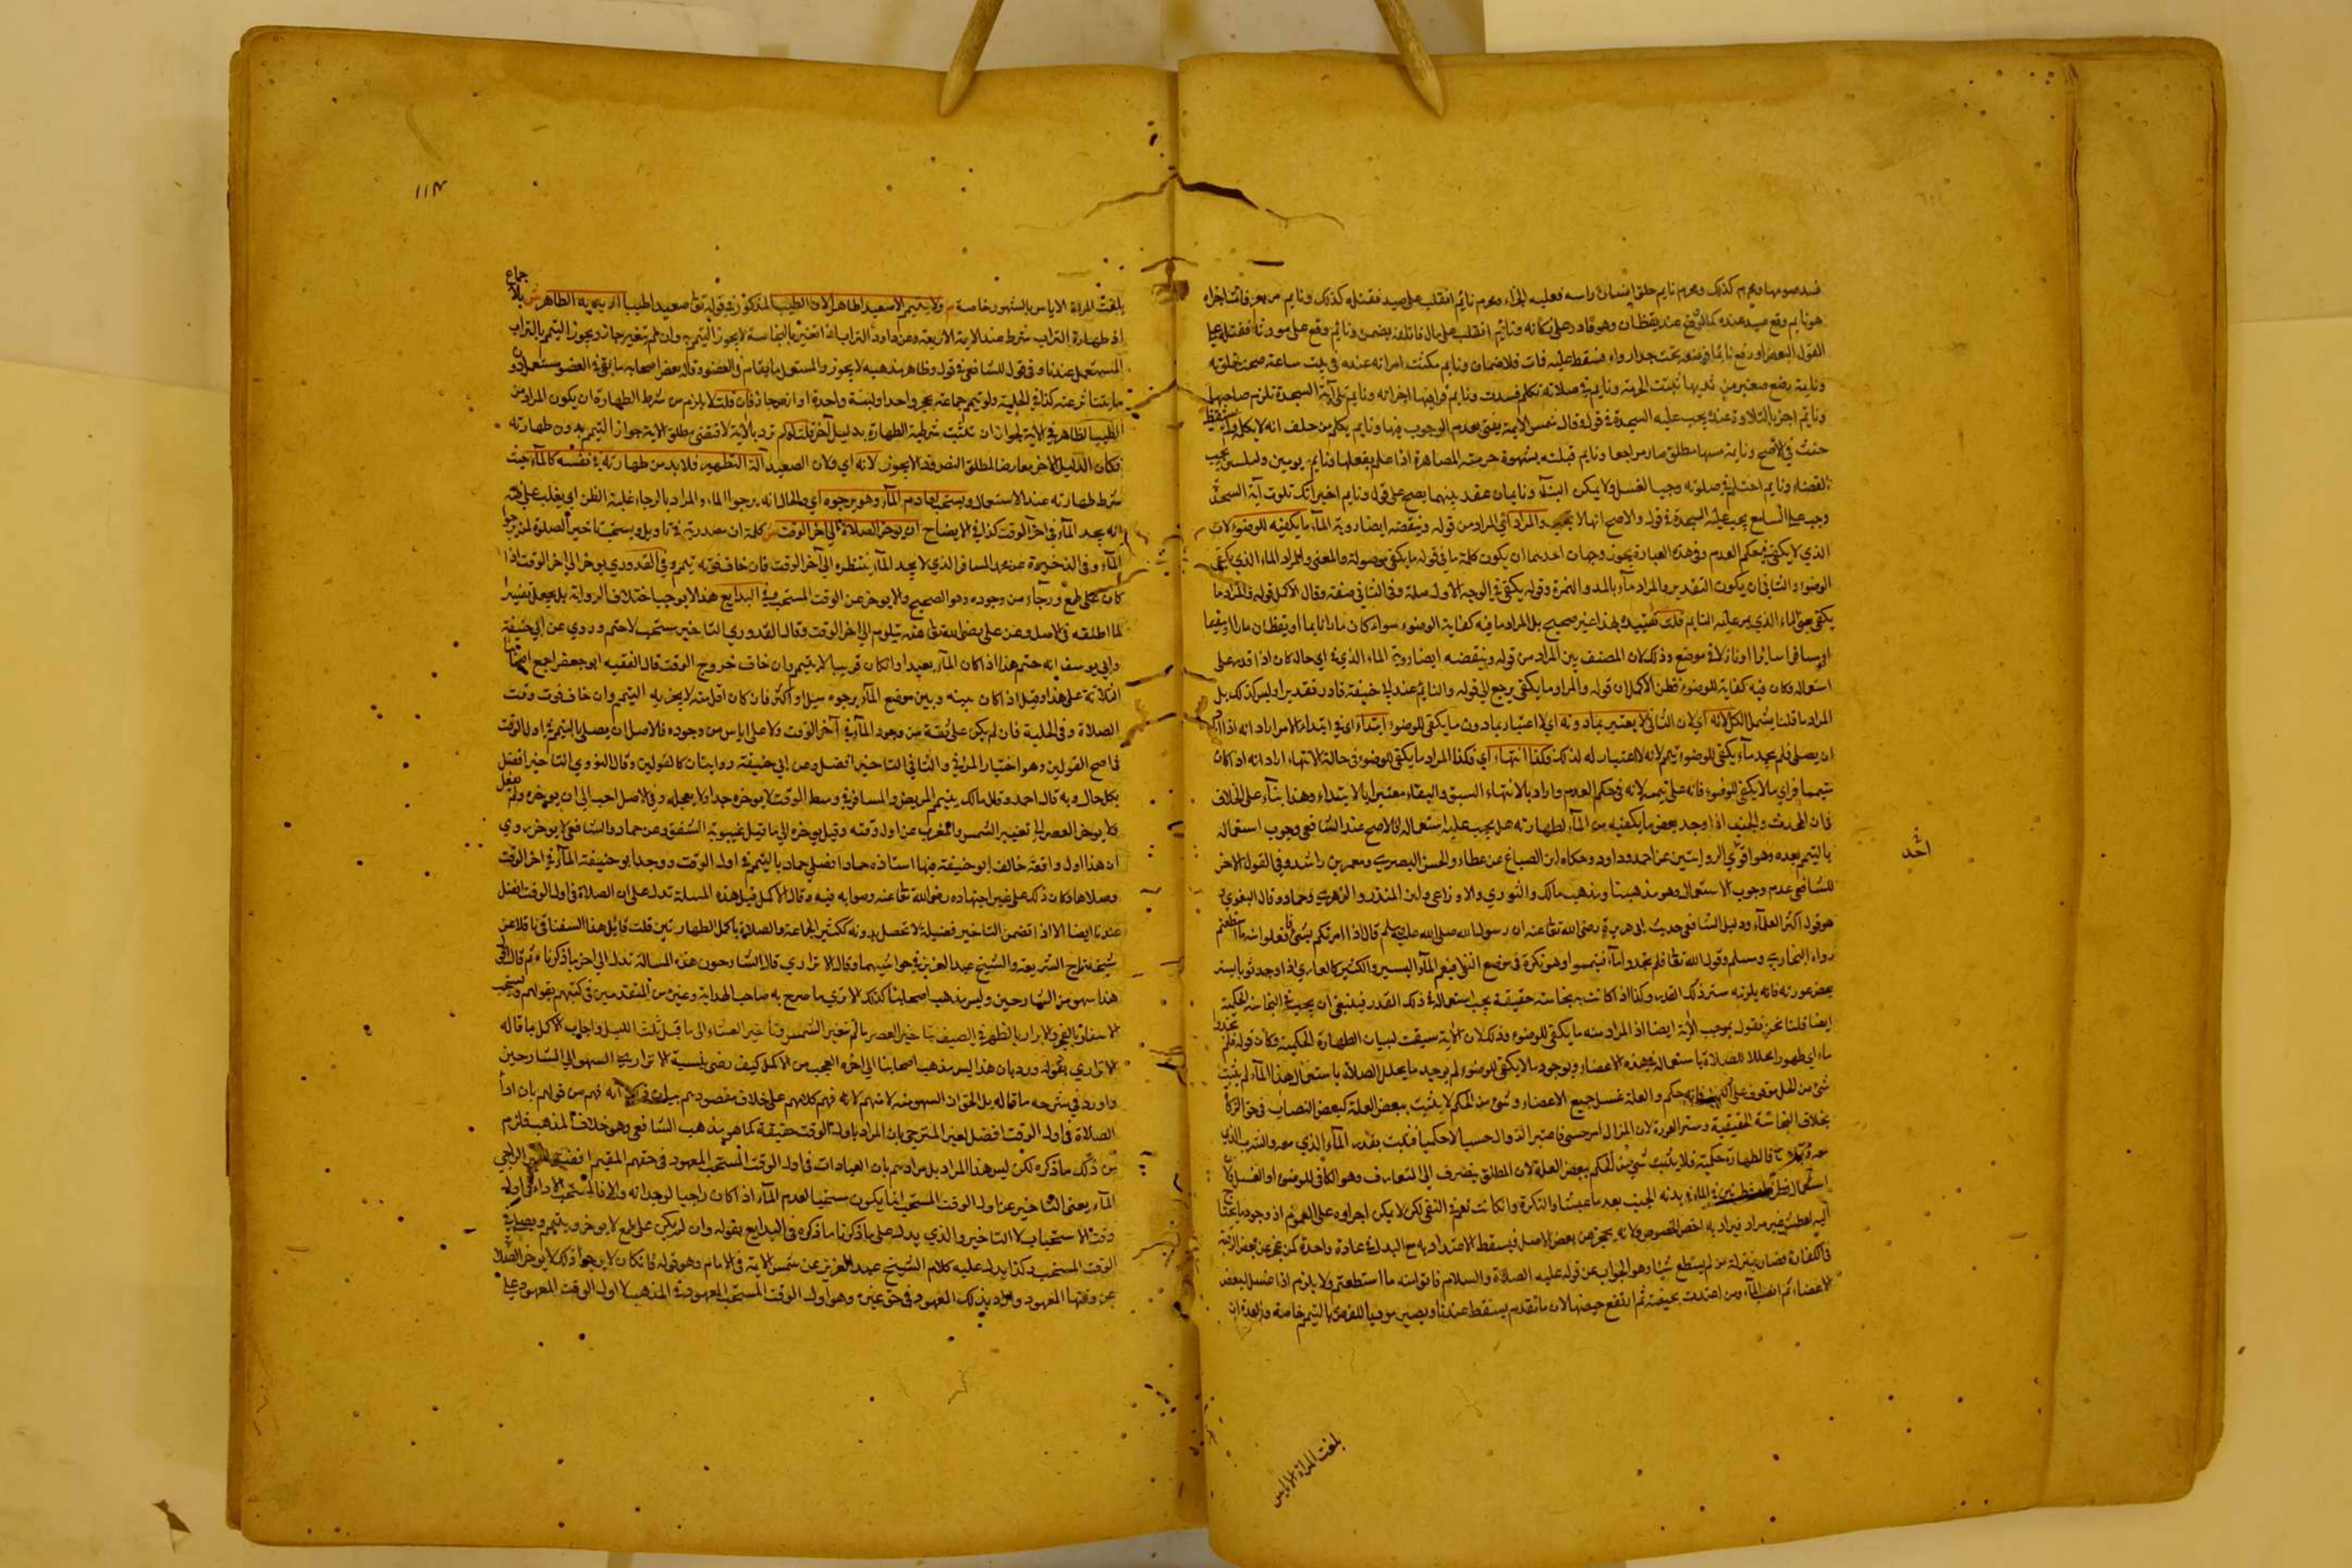 فسد صومها ومحرم كذلك ومحرم نايم حلق انسان راسه فعليه الجزاء ومحرم نايم انقلب على صيد فقتله كذلك ونايم
هو نايم وقع صيد عنده كما لو وقع عند يقظان وهو قادر على ذكاته ونايم انقلب على مال فاتلفه يضمن ونايم وقع على مورثه فقتله
القول البعض او رفع نايما فوضعه تحت جدار واه فسقط عليه فات فلا ضمان ونايم مكثت امراته عنده في بيت ساعة صحت خلوته
ونايمة رضع صغير من ثديها تثبت الحرمة ونايم في صلاته تكلم فسدت ونايم قرا فيها اجزاته ونايم تلى آية السجدة تلزم صاحبها
ونايم اخبر بالتلاوة عنده يجب عليه السجدة في قول وقال شمس الايمة يفتى بعدم الوجوب فيها ونايم يكلم من حلف انه لا يكلمه ولم يستيقظ
حنث في الاصح ونايمة مسها مطلق صار مراجعا ونايم قبلته بشهوة حرمت المصاهرة اذا علم بفعلها ونايم يومين وليلتين يجب
القضاء ونايم احتلم في صلوته وجب الغسل ولا يمكن البناء ونايمان عقد بينهما يصح على قول ونايم اخبر انك تلوت آية السجدة
وجب على السامع يجب عليه السجدة في قول والاصح انها لا تجب والمراد اي المراد من قوله وينقضه ايضا روية الماء ما يكفيه للوضوء لان
الذي لا يكفي في حكم العدم وفي هذه العبارة يجوز وجهان احدهما ان يكون كلمة ما في قوله ما يكفي موصولة والمعنى والمراد الماء الذي يكفي
الوضوء والثاني ان يكون التقدير والمراد ماء بالمد والنكرة وقوله يكفي في الوجه الاول صلة وفي الثاني صفة وقال الاكمل قوله فالمراد ما
يكفي حتى الماء الذي مر عليه النايم قلت تقييده بهذا غير صحيح بل المراد ما فيه كفاية الوضوء سواء كان مارا نايما او يقظان مارا او مقيما
او مسافرا سائرا او نازلا في موضع وذلك لان المصنف بين المراد من قوله وينقضه ايضا روية الماء الذي في اي حال كان اذا قدر على
استعماله وكان فيه كفاية للوضوء فظن الاكمل ان قوله والمراد ما يكفي يرجع الى قوله والنايم عند ابي حنيفة قادر تقديرا وليس كذلك بل
المراد ما قلنا يشمل الكل لانه اي لان الثاني لا يعتبر بما دونه اي لا اعتبار بما دون ما يكفي للوضوء ابتداء اي في ابتداء الامر اراد انه اذا اراد
ان يصلي فلم يجد ماء يكفي للوضوء تيمم لانه لا اعتبار له لذلك فكذا انتهاء اي فكذا المراد ما يكفي للوضوء في حالة الانتهاء اراد انه اذا كان
متيمما فراى ما لا يكفي للوضوء فانه على تيممه لانه في حكم العدم واراد بالانتهاء السبق والبقاء معتبرا بالابتداء وهذا بناء على الخلاف
فان المحدث والجنب اذا وجد بعض ما يكفيه من الماء لطهارته هل يجب عليه استعماله فالاصح عند الشافعي وجوب استعماله
بالتيمم بعده وهو اقوى الروايتين عن احمد وداود وحكاه ابن الصباغ عن عطاء والحسن البصري ومعمر بن راشد وفي القول الاخر
للشافعي عدم وجوب الاستعمال وهو مذهبنا ومذهب مالك والثوري والاوزاعي وابن المنذر والزهري وحماد وقال البغوي
هو قول اكثر العلماء ودليل الشافعي حديث ابي هريرة رضي الله تعا عنه ان رسول الله صلى الله عليه وسلم قال اذا امرتكم بشئ فافعلوا منه ما استطعتم
رواه البخاري ومسلم وقول الله تعا فلم تجدوا ماء فتيمموا وهو نكرة في موضع النفي فيعم الماء اليسير والكثير كالعاري اذا وجد ثوبا يستر
بعض عورته فانه يلزمه ستر ذلك القدر وكذا اذا كانت به نجاسة حقيقية يجب استعماله في ذلك القدر فينبغي ان يجب في النجاسة الحكمية
ايضا قلنا نحن نقول بموجب الآية ايضا اذ المراد منه ما يكفي للوضوء وذلك لان الآية سيقت لبيان الطهارة الحكمية وكان قوله فلم تجدوا
ماء اي طهورا محللا للصلاة باستعماله في هذه الاعضاء وبوجود ما لا يكفي للوضوء لم يوجد ما يحلل الصلاة باستعمال هذا الماء لم يثبت
شئ من الحل موقوف على الكل فانه حكم والعلة غسل جميع الاعضاء وشئ من الحكم لا يثبت ببعض العلة كبعض النصاب في حق الزكاة
بخلاف النجاسة الحقيقية وستر العورة لان المزال امر حسي فاعتبر الزوال حسيا لا حكميا فثبت بقدر الماء الذي معه والثوب الذي
فالطهارة حكمية فلا يثبت شئ من الحكم ببعض العلة لان المطلق ينصرف الى المتعارف وهو الكافي للوضوء او الغسل
الماء في بدنه الجنب بعد ما عبثا والنكرة وان كانت تعم في النفي لكن لا يمكن اجراوه على العموم اذ وجود ما يحتاج
اليه لعطش غير مراد فيراد به اخص الخصوص ولانه يحجز عن بعض الاصل فيسقط الاعتداد به مع البدل في عادة واحدة كمن عجز عن بعض الرقبة
في الكفارة فصار بمنزلة من لم يستطع شيئا وهو الجواب عن قوله عليه الصلاة والسلام فاتوا منه ما استطعتم ولا يلزم اذا غسل بعض
الاعضاء ثم انصب الماء ومن اعتدت بحيضة ثم ارتفع حيضها لان ما تقدم يسقط عندنا ويصير موديا للفرض بالتيمم خاصة وفي العدة ان
احمد
بلغت المراة الاياس
١١٣
بلغت المراة الاياس بالشهور خاصة م ولا يتيمم الا بصعيد طاهر لان الطيب المذكور في قوله تعا صعيدا طيبا اريد به الطاهر ش بلا
جماع
اذ طهارة التراب شرط عند الايمة الاربعة وعن داود التراب اذا تغير بالنجاسة لا يجوز التيمم به وان لم يتغير جاز ويجوز التيمم بالتراب
المستعمل عندنا وفي قول للشافعي في قول وظاهر مذهبه لا يجوز والمستعمل ما يتناثر من العضو وقال بعض اصحابه ما بقي في العضو مستعمل دون
ما يتناثر عنه كذا في الحلية ولو تيمم جماعة بحجر واحد او لبنة واحدة او ارض جاز فان قلت لا يلزم من شرط الطهارة ان يكون المراد من
الطيب الطاهر في الآية لجواز ان تثبت شرطية الطهارة بدليل آخر قلت لو لم ترد بالآية لاقتضى مطلق الآية جواز التيمم بدون طهارته
فكان الدليل الآخر معارضا لمطلق النص وذا لا يجوز لانه اي ولان الصعيد آلة التطهير فلا بد من طهارته في نفسه كالماء حيث
شرط طهارته عند الاستعمال ويستحب لعادم الماء وهو يرجوه اي والحال انه يرجو الماء والمراد بالرجاء غلبة الظن اي يغلب على ظنه
انه يجد الماء في آخر الوقت كذا في الايضاح ان يوخر الصلاة الى آخر الوقت ش كلمة ان مصدرية في تاويل ويستحب تاخير الصلوة لمن يرجو
الماء وفي الذخيرة عن محمد المسافر الذي لا يجد الماء ينتظره الى آخر الوقت فان خاف فوته تيمم وفي القدوري يوخر الى آخر الوقت اذا
كان على طمع ورجاء من وجوده وهو الصحيح ولا يوخر عن الوقت المستحب وفي البدايع هذا لا يوجب اختلاف الرواية بل يجعل تفسيرا
لما اطلقه في الاصل وعن علي رضي الله تعا عنه يتلوم الى آخر الوقت وقال القدوري التاخير مستحب لا حتم وروي عن ابي حنيفة
وابي يوسف انه حتم هذا اذا كان الماء بعيدا وان كان قريبا لا يتيمم وان خاف خروج الوقت قال الفقيه ابو جعفر اجمع اصحابنا
الثلاثة على هذا وقيل اذا كان بينه وبين موضع الماء يرجوه ميل او اكثر فان كان اقل منه لا يجزيه التيمم وان خاف فوت وقت
الصلاة وفي الحلية فان لم يكن على ثقة من وجود الماء في آخر الوقت ولا على اياس من وجوده فالاصل ان يصلي بالتيمم في اول الوقت
في اصح القولين وهو اختيار المزني والثاني التاخير افضل وعن ابي حنيفة روايتان كالقولين وقال النووي التاخير افضل
بكل حال وبه قال احمد وقال مالك يتيمم المريض والمسافر في وسط الوقت لا يوخره جدا ولا يعجله وفي الاصل احب الى ان يوخره ولم يفصل
فلا يوخر العصر الى تغيير الشمس والمغرب عن اول وقته وقيل يوخره الى ما قبل غيبوبة الشفق وعن حماد والشافعي لا يوخر روي
ان هذا اول واقعة خالف ابو حنيفة فيها استاذه حمادا فصلى حماد بالتيمم في اول الوقت ووجد ابو حنيفة الماء في آخر الوقت
وصلاها وكان ذلك على غير اجتهاده رضي الله تعا عنه وصوابه فيه وقال الاكمل قيل هذه المسلة تدل على ان الصلاة في اول الوقت افضل
عندنا ايضا الا اذا تضمن التاخير فضيلة لا تحصل بدونه كتكثير الجماعة والصلاة باكمل الطهارتين قلت قايل هذا السغناقي ناقلا عن
شيخه تاج الشريعة والشيخ عبد العزيز في حواشيهما وقال الاتراري قال الشارحون هذه المسالة تدل الى آخر ما ذكرناه ثم قال الى
هذا سهو من الشارحين وليس مذهب اصحابنا كذلك الا ترى ما صرح به صاحب الهداية وغيره من المتقدمين في كتبهم بقولهم ويستحب
الاسفار بالفجر والابراد بالظهر في الصيف وتاخير العصر ما لم تتغير الشمس وتاخير العشاء الى ما قبل ثلث الليل واجاب الاكمل بما قاله
الاتراري بقوله ورد بان هذا ليس مذهب اصحابنا الى اخره العجب من الاكمل كيف رضي بنسبة الاتراري السهو الى الشارحين
واورد في شرحه ما قاله بل الحق ان السهو منه لا منهم لانه فهم كلامهم على خلاف مقصودهم بيان ذلك انه فهم من قولهم بان اداء
الصلاة في اول الوقت افضل لغير المترجي بان المراد باول الوقت حقيقة كما هو مذهب الشافعي وهو خلاف المذهب فلزم
من ذلك ما ذكره لكن ليس هذا المراد بل مرادهم بان العبادات في اول الوقت المستحب المعهود في حقهم المقيم افضل الراجي
الماء بعض التاخير عن اول الوقت المستحب انما يكون مستحبا لعدم الماء اذا كان راجيا لوجدانه والا فالمستحب الاداء في اول
وقت الاستحباب لا التاخير والذي يدل على ما ذكرنا ما ذكره في البدايع بقوله وان لم يكن على طمع لا يوخر ويتيمم ويصلي في
الوقت المستحب وكذا يدل عليه كلام الشيخ عبد العزيز عن شمس الايمة في الامام وهو قوله فان كان لا يرجو ذلك لا يوخر الصلاة
عن وقتها المعهود والمراد بذلك المعهود في حق غيره وهو اول الوقت المستحب المعهود في المذهب لا اول الوقت المعهود على